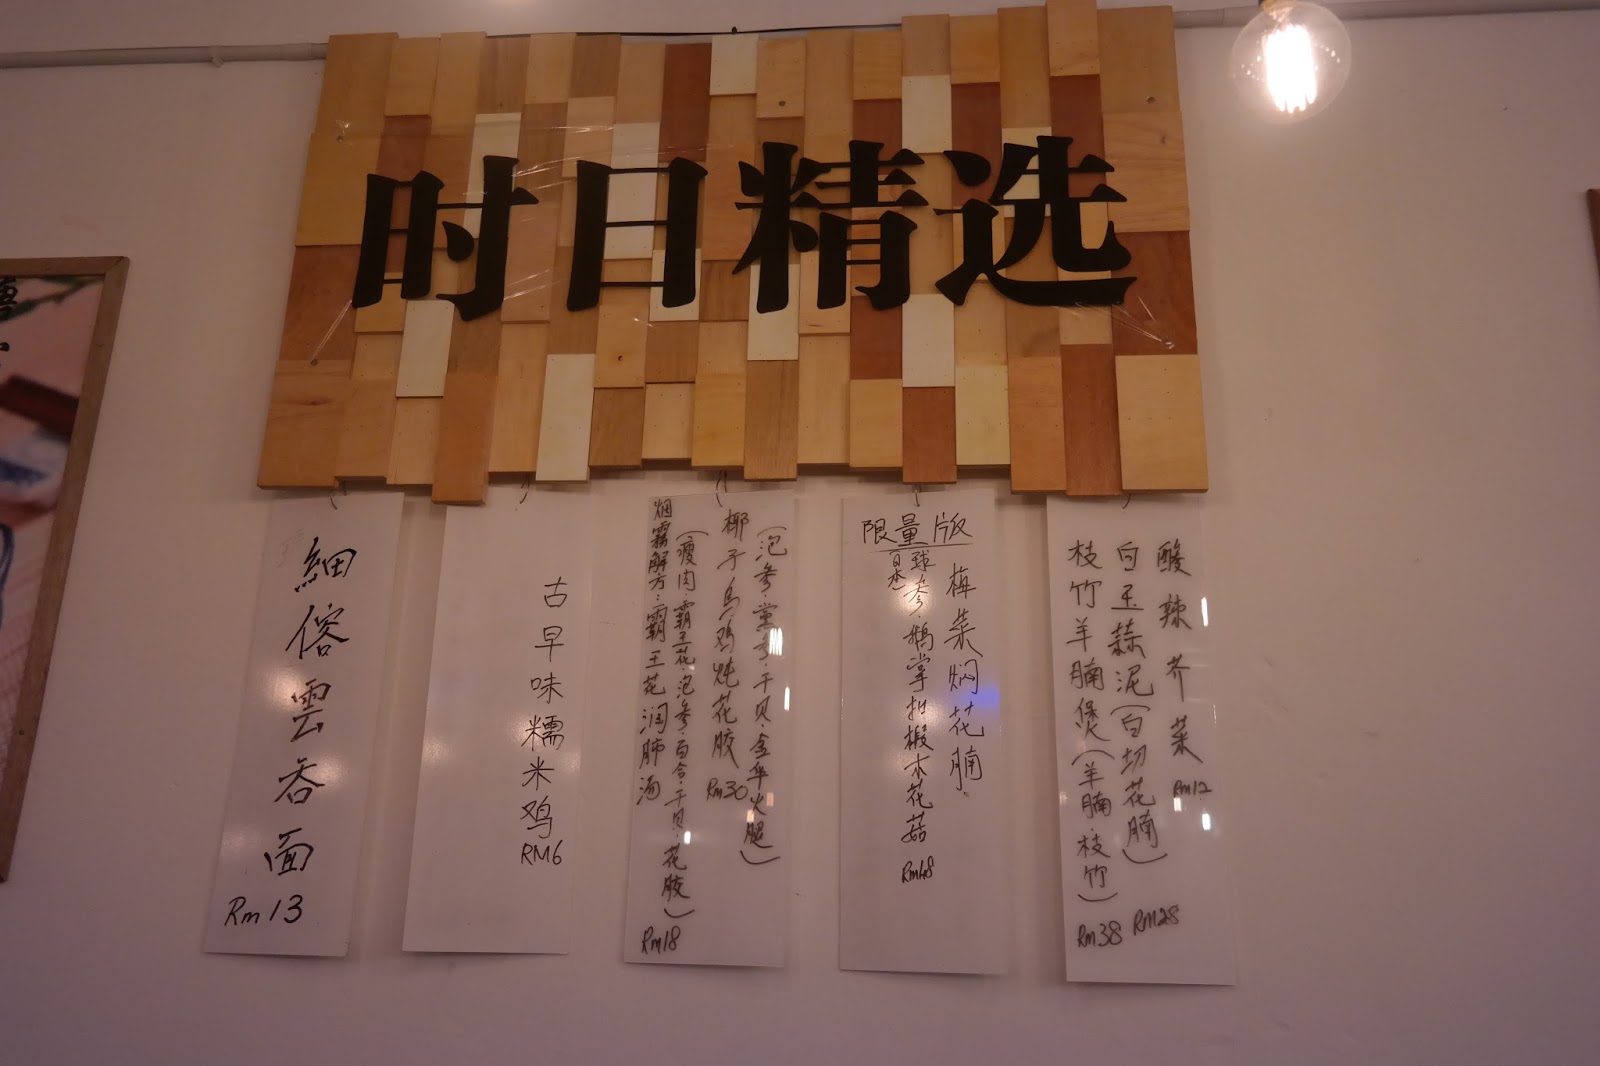 时日精选
細傛雲吞面
Rm13
古早味糯米鸡
RM6
(泡参·黨参·干贝·金华火腿)
椰子乌鸡炖花胶
Rm30
(瘦肉·霸王花·泡参·百合·干贝·花胶)
烟霧解方:霸王花润肺汤
Rm18
限量版
梅菜焖花腩
日本球参·鹅掌扣椴木花菇
Rm48
酸辣芥菜
Rm12
白玉蒜泥(白切花腩)
Rm28
枝竹羊腩煲(羊腩·枝竹)
Rm38